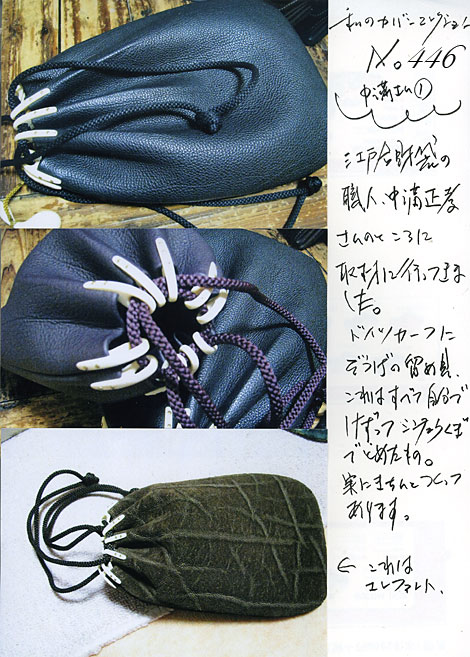 私のカバンコレクション
No.446
中満さん①
江戸合財袋の
職人、中満正孝
さんのところに
取材に行ってきま
した。
ドイツカーフに
ぞうげの留め具、
これはすべて自分で
けずって シンチュウくぎ
でとめたもの。
実にきちんとつくって
あります。
← これは
エレファント、